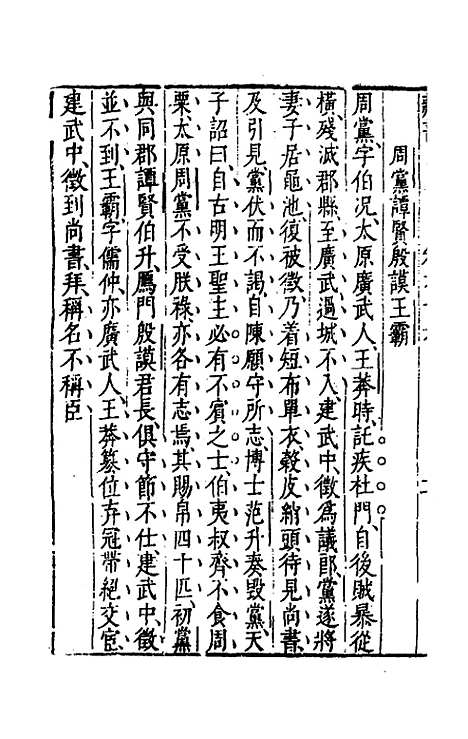 周黨譚賢殷謨王霸
周黨、字伯况、太原廣武人、王莽時、託疾杜門、自後賊暴從
橫、殘滅郡縣、至廣武過城不入、建武中、徵爲議郎、黨遂將
妻子居黽池、復被徵、乃着短布單衣、榖皮綃頭、待見尚書、
及引見、黨伏而不謁、自陳願守所志、博士范升奏毀黨、天
子詔曰、自古明王聖主、必有不賓之士、伯夷叔齊、不食周
粟、太原周黨、不受朕祿、亦各有志焉、其賜帛四十匹、初黨
與同郡譚賢伯升、鴈門殷謨君長、俱守節不仕、建武中、徵
並不到、王霸、字儒仲、亦廣武人、王莽篡位、弃冠帶、絕交宦、
建武中、徵到尚書、拜、稱名不稱臣